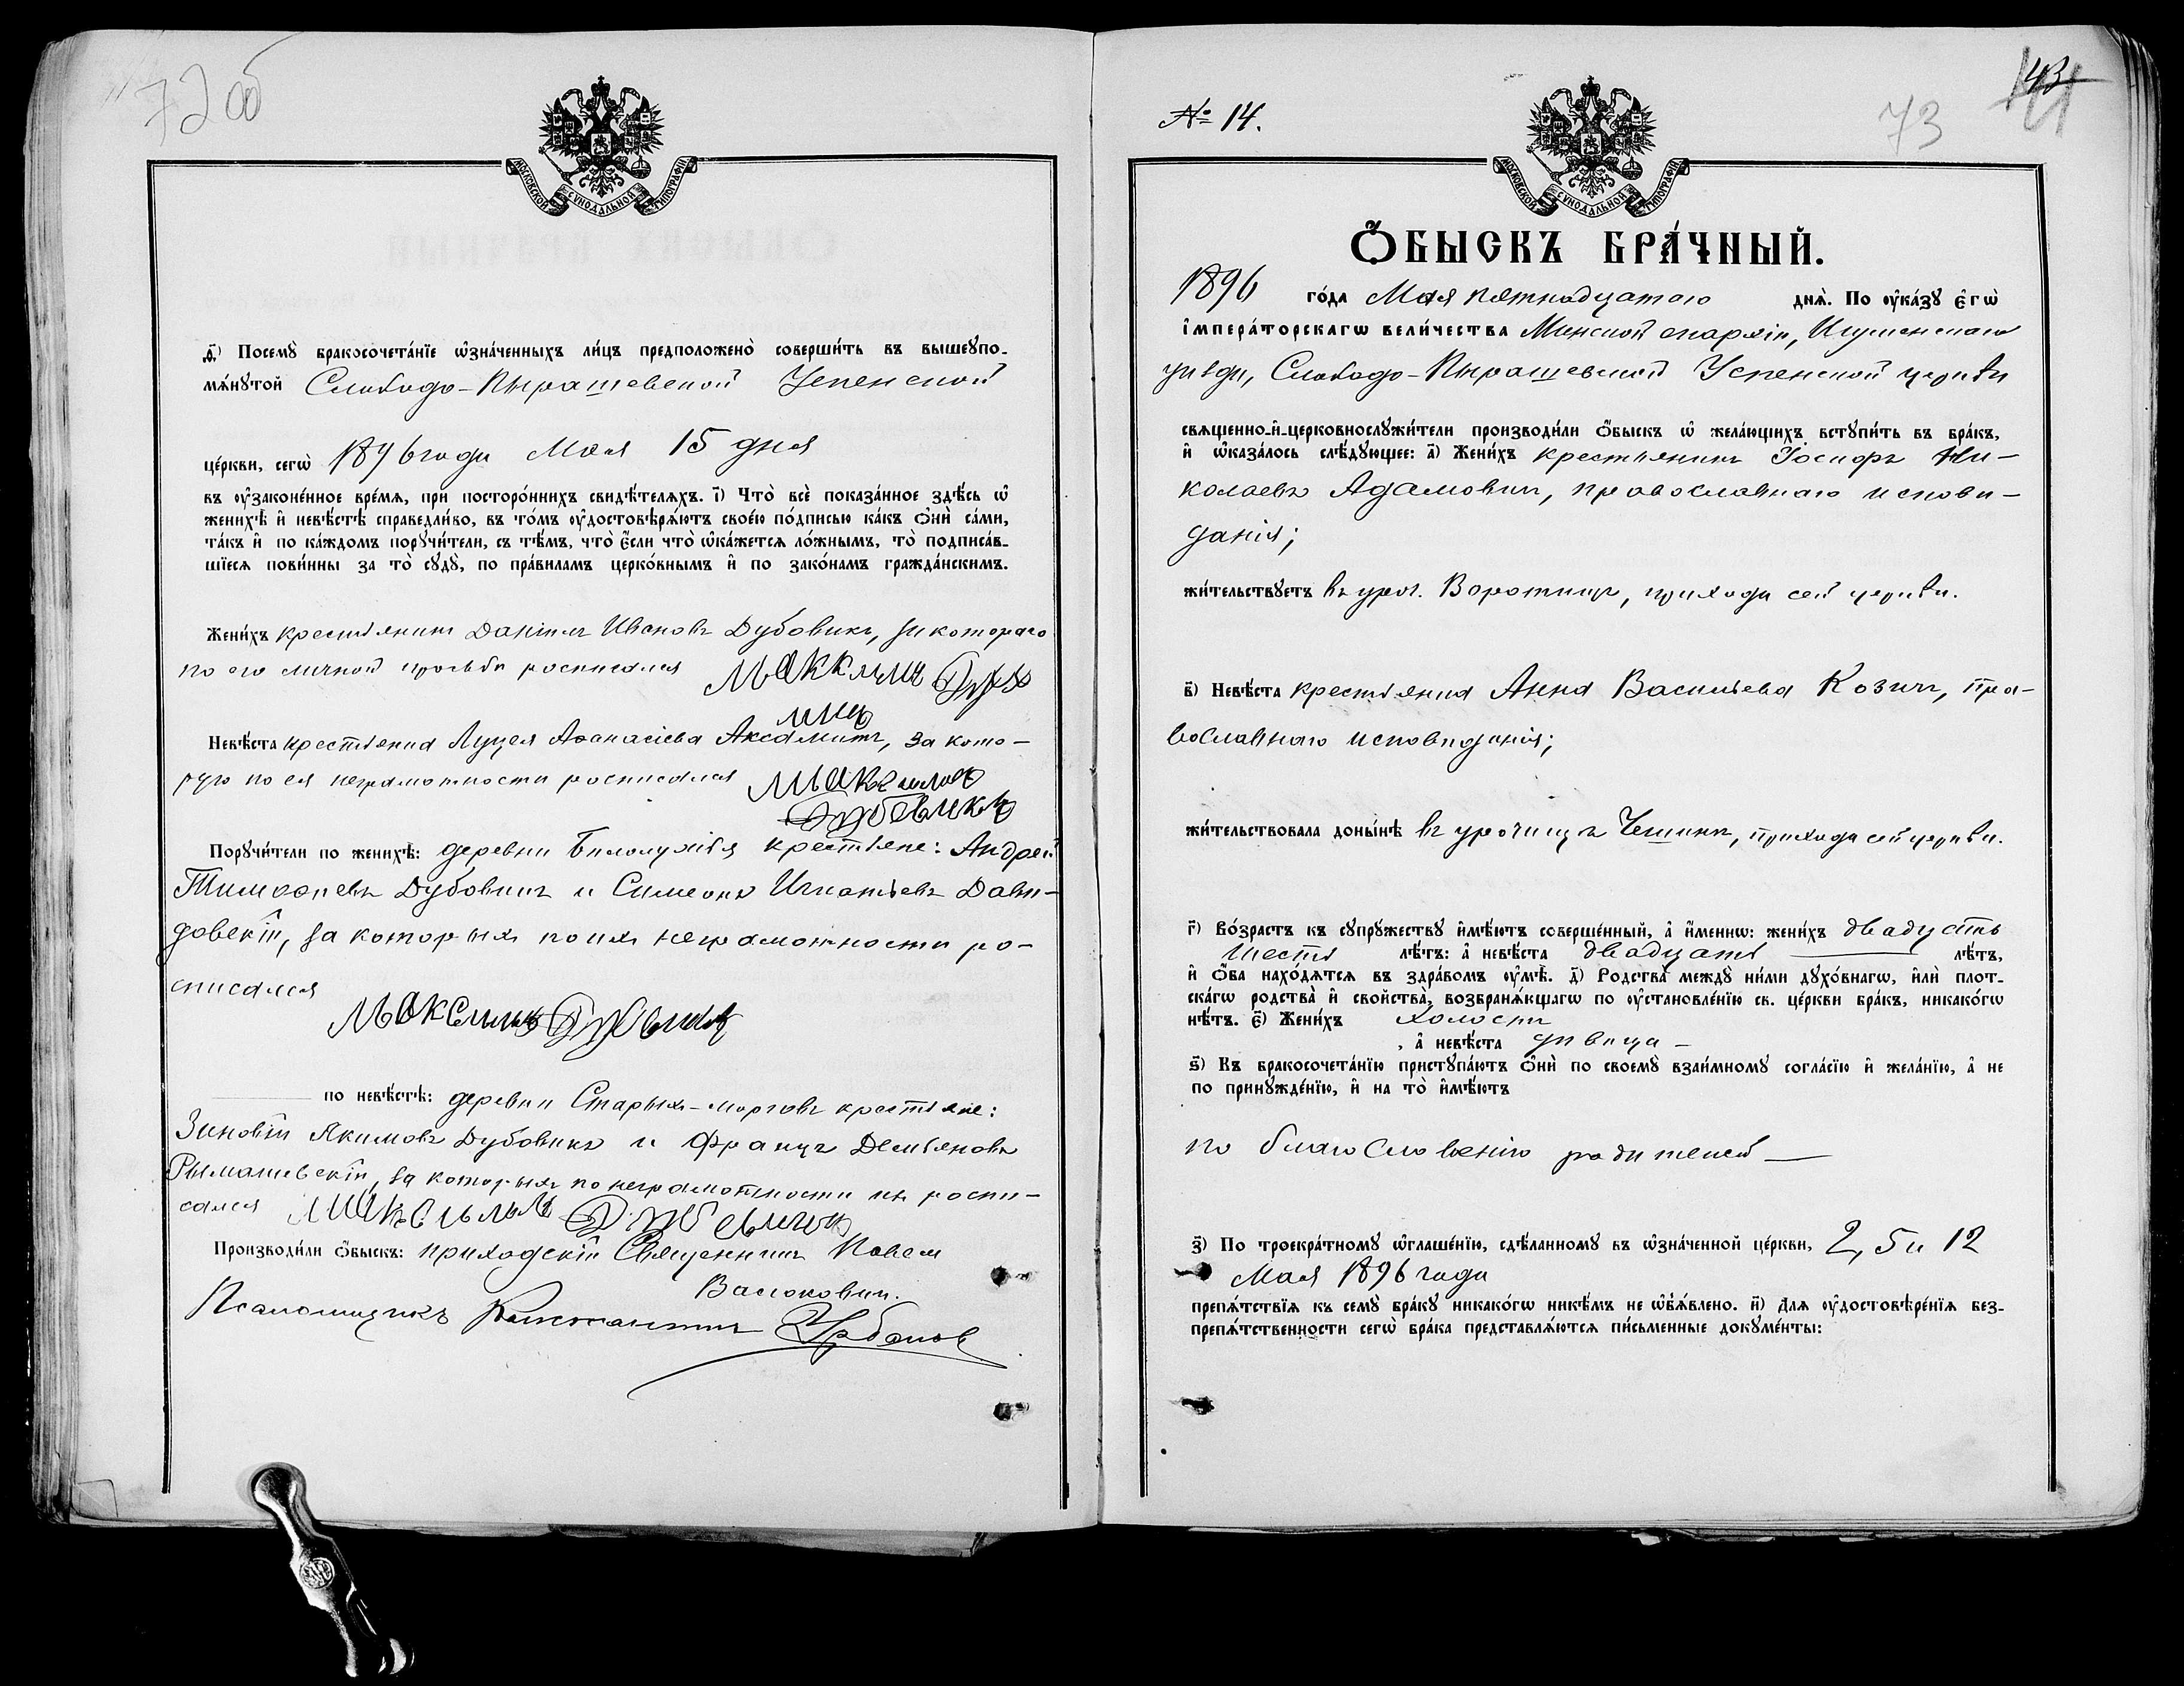 72 об
МОСКОВСКОЙ СѴНОДАЛЬНОЙ ТИПОГРАФІИ
д҃) Посемꙋ̀ бракосочета́нїе ѡ҆зна́ченныхъ ли́цъ предположено̀ соверши́ть въ вышеꙋпо-
мѧ́нꙋтой Слободо-Пырашевской Успенской
це́ркви, сегѡ̀ 1896 года Мая 15 дня
въ ᲂу҆законе́нное вре́мѧ, при посторо́ннихъ свидѣ́телѧхъ. і҃) Что̀ всѐ показа́нное здѣ́сь ѡ҆
женихѣ̀ и҆ невѣ́стѣ справедли́во, въ то́мъ ᲂу҆достовѣрѧ́ютъ свое́ю по́дписью ка́къ ѻ҆нѝ са́ми,
та́къ и҆ по ка́ждомъ порꙋчи́тели, съ тѣ́мъ, что̀ є҆́сли что̀ ѡ҆ка́жетсѧ ло́жнымъ, то̀ подписа́в-
шїесѧ пови́нны за то̀ сꙋдꙋ̀, по пра́виламъ церко́внымъ и҆ по зако́намъ гражда́нскимъ.
Жени́хъ крестьянинъ Даніилъ Ивановъ Дубовикъ, за котораго
по его личной просьбѣ росписался
Невѣ́ста крестьянка Луцея Аѳанасіева Аксамитъ, за кото-
рую по ея неграмотности росписался Максимъ
Дубовикъ
Порꙋчи́тели по женихѣ̀: деревни Бѣлолужья крестьяне: Андрей
Тимоѳеевъ Дубовикъ и Симеонъ Игнатьевъ Дави-
довскій, за которыхъ по ихъ неграмотности ро-
списался
Максимъ Дубовикъ
по невѣ́стѣ: деревни Старыхъ-морговъ крестьяне:
Зиновій Якимовъ Дубовикъ и Францъ Демьяновъ
Рымашевскій, за которыхъ по неграмотности ихъ роспи-
сался Максимъ Дубовикъ
Производи́ли ѻ҆́быскъ: приходскій Священникъ Павелъ
Васюковичъ.
Псаломщикъ Константинъ Урбанов
№ 14.
73
43
МОСКОВСКОЙ СѴНОДАЛЬНОЙ ТИПОГРАФІИ
Ѻ҆́БЫСКЪ БРА́ЧНЫЙ.
1896 го́да Мая пятнадцатаго днѧ̀. По ᲂу҆ка́зꙋ є҆гѡ̀
і҆мпера́торскагѡ вели́чества Минской епархіи, Игуменскаго
уѣзда, Слободо-Пырашевской Успенской церкви
свѧщенно-и҆-церковнослꙋжи́тели производи́ли ѻ҆́быскъ ѡ҆ жела́ющихъ встꙋпи́ть въ бра́къ,
и҆ ѡ҆каза́лось слѣ́дꙋющее: а҃) Жени́хъ крестьянинъ Іосифъ Ни-
колаевъ Адамовичъ, православнаго исповѣ-
данія;
жи́тельствꙋетъ въ уроч. Воротище, прихода сей церкви.
в҃) Невѣ́ста крестьянка Анна Васильева Козичъ, пра-
вославнаго исповѣданія;
жи́тельствовала доны́нѣ въ урочищѣ Чешинъ, прихода сей церкви.
г҃) Во́зрастъ къ сꙋпрꙋ́жествꙋ и҆мѣ́ютъ соверше́нный, а҆ и҆́меннѡ: жени́хъ двадцать
шесть лѣ́тъ: а҆ невѣ́ста двадцать лѣ́тъ,
и҆ ѻ҆́ба нахо́дѧтсѧ въ здра́вомъ ᲂу҆мѣ̀. д҃) Родства̀ междꙋ̀ ни́ми дꙋхо́внагѡ, и҆лѝ плот-
ска́гѡ родства̀ и҆ сво́йства, возбранѧ́ющагѡ по ᲂу҆становле́нїю св. це́ркви бра́къ, никако́гѡ
нѣ́тъ. є҃) Жени́хъ холостъ
, а҆ невѣ́ста дѣвица
ѕ҃) Къ бракосочета́нїю пристꙋпа́ютъ ѻ҆нѝ по своемꙋ̀ взаи́мномꙋ согла́сїю и҆ жела́нїю, а҆ не
по принꙋжде́нїю, и҆ на то̀ и҆мѣ́ютъ
по благословенію родителей
з҃) По троекра́тномꙋ ѡ҆глаше́нїю, сдѣ́ланномꙋ въ ѡ҆зна́ченной це́ркви, 2, 5 и 12
Мая 1896 года
препѧ́тствїѧ къ семꙋ̀ бра́кꙋ никако́гѡ никѣ́мъ не ѡ҆б̾ѧ́влено. и҃) Для ᲂу҆достовѣре́нїѧ без-
препѧ́тственности сегѡ̀ бра́ка представлѧ́ютсѧ пи́сьменные докꙋме́нты: